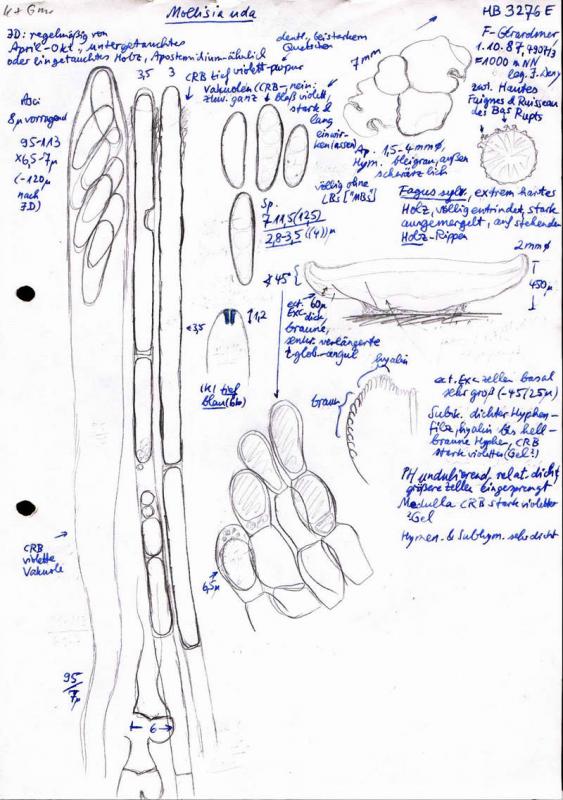 Mollisia uda
HB 3276 E
JD: regelmäßig von
April-Okt., untergetauchtes
oder eingetauchtes Holz, Apostemidium-ähnlich
deutl. bei starkem
Quetschen
F- Gérardmer,
1.10.87, 7907/3
≈1000 m NN
leg. J. Deny
zw. Hautes
Faignes & Ruisseau
des Bas Rupts
7mm
3,5
3
CRB tief violett-purpur
Vakuolen (CRB-, nein:
zuw. ganz blaß violett,
stark &
lang
einwir-
ken lassen)
Asci
8µ vorragend
95-113
×6,5-7µ
(-120µ
nach
JD)
Ap. 1,5-4mmø,
Hym. bleigrau, außen
schwärzlich
völlig ohne
LBs ["MBs]
Sp.
7-11,5(12,5)
2,8-3,5((4))µ
Fagus sylv., extrem hartes
Holz, völlig entrindet, stark
ausgemergelt, auf stehenden
Holz-Rippen
2mmø
∢45°
450µ
ect. 60µ
Exc dick,
braune,
senkr. verlängerte
t. glob.-angul
<3,5
1,2
(K) tief
blau (bb)
hyalin
braun
ect. Exc-zellen basal
sehr groß (-45/25µ)
Subik. dichter Hyphen-
filz, hyalin bis hell-
braune Hyphen, CRB
stark violetter (Gel?)
PH undulierend, relat. dicht
größere Zellen eingesprengt
Medulla CRB stark violetter
?Gel
Hymen. & Subhym. sehr dicht
CRB
violette
Vakuole
6,5µ
95/7µ
6